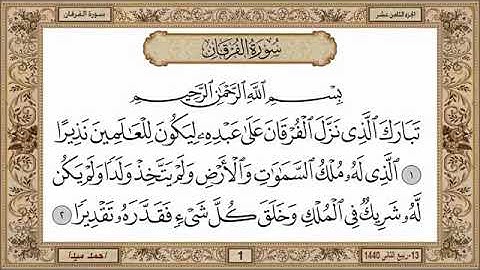 الجزء الثامن عشر
سورة الفرقان
سُورَةُ الفُرْقَانِ
بِسْمِ اللَّهِ الرَّحْمَٰنِ الرَّحِيمِ
تَبَارَكَ الَّذِي نَزَّلَ الْفُرْقَانَ عَلَىٰ عَبْدِهِ لِيَكُونَ لِلْعَالَمِينَ نَذِيرًا
۝١ الَّذِي لَهُ مُلْكُ السَّمَاوَاتِ وَالْأَرْضِ وَلَمْ يَتَّخِذْ وَلَدًا وَلَمْ يَكُن
لَّهُ شَرِيكٌ فِي الْمُلْكِ وَخَلَقَ كُلَّ شَيْءٍ فَقَدَّرَهُ تَقْدِيرًا ۝٢
13-ربيع الثاني 1440
1
احمد عيدا